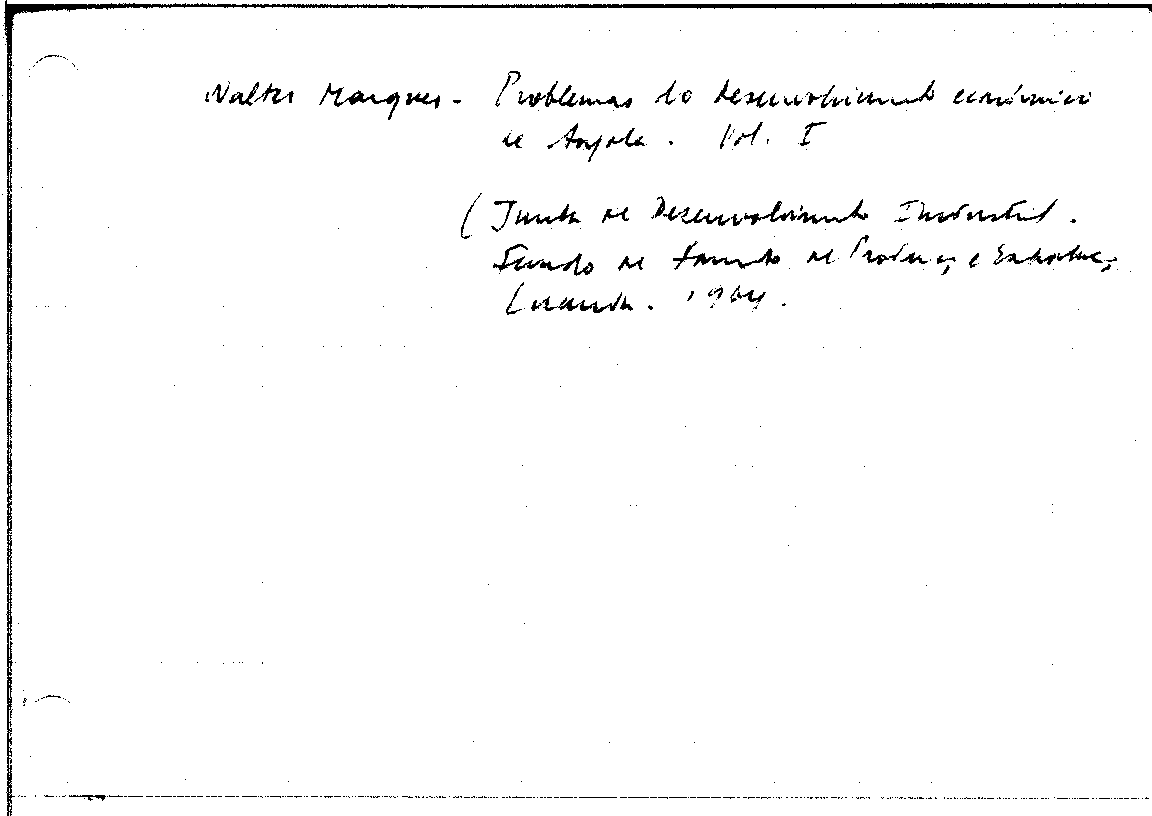 Walter Marques - Problemas do desenvolvimento económico
de Angola. Vol. I
(Junta de Desenvolvimento Industrial.
Fundo de Fomento de Produç, e Exportaç,
Luanda. 1964.